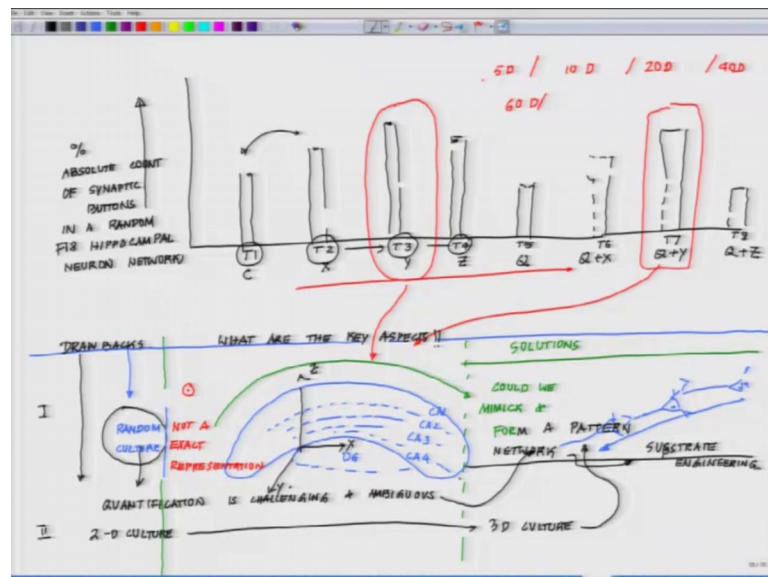 5D / 10 D / 20D / 40D
60 D/
%
ABSOLUTE COUNT
OF SYNAPTIC
BUTTONS
IN A RANDOM
F18 HIPPOCAMPAL
NEURON NETWORK
T1 T2 T3 T4 T5 T6 T7 T8
C X Y Z Q Q+X Q+Y Q+Z
DRAW BACKS
WHAT ARE THE KEY ASPECTS !!
SOLUTIONS
I
RANDOM
CULTURE
NOT A
EXACT
REPRESENTATION
Z
X
Y
CA1
CA2
CA3
CA4
DG
COULD WE
MIMICK &
FORM A PATTERN
NETWORK
SUBSTRATE
ENGINEERING
QUANTIFICATION IS CHALLENGING & AMBIGUOUS
II 2-D CULTURE 3D CULTURE